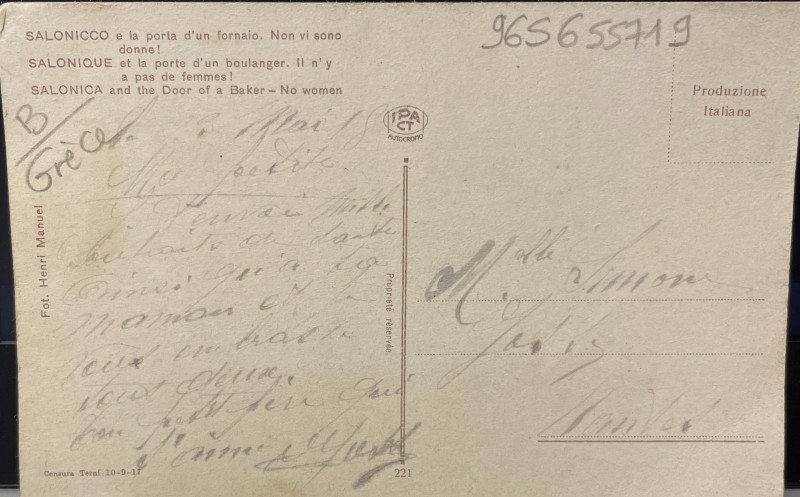 SALONICCO e la porta d'un fornaio. Non vi sono
donne!
SALONIQUE et la porte d'un boulanger. Il n'y
a pas de femmes!
SALONICA and the Door of a Baker – No women
965655719
B/
Grèce
IPA
CT
AUTOCROMO
Produzione
Italiana
Fot. Henri Manuel
Mai
Ma petite
J'envoi
de
ainsi qu'a ta
maman et
vous embrasse
tous deux
ton petit père qui
t'aime
Propriété réservée
M.lle Simone
Censura Terni 10-9-17
221